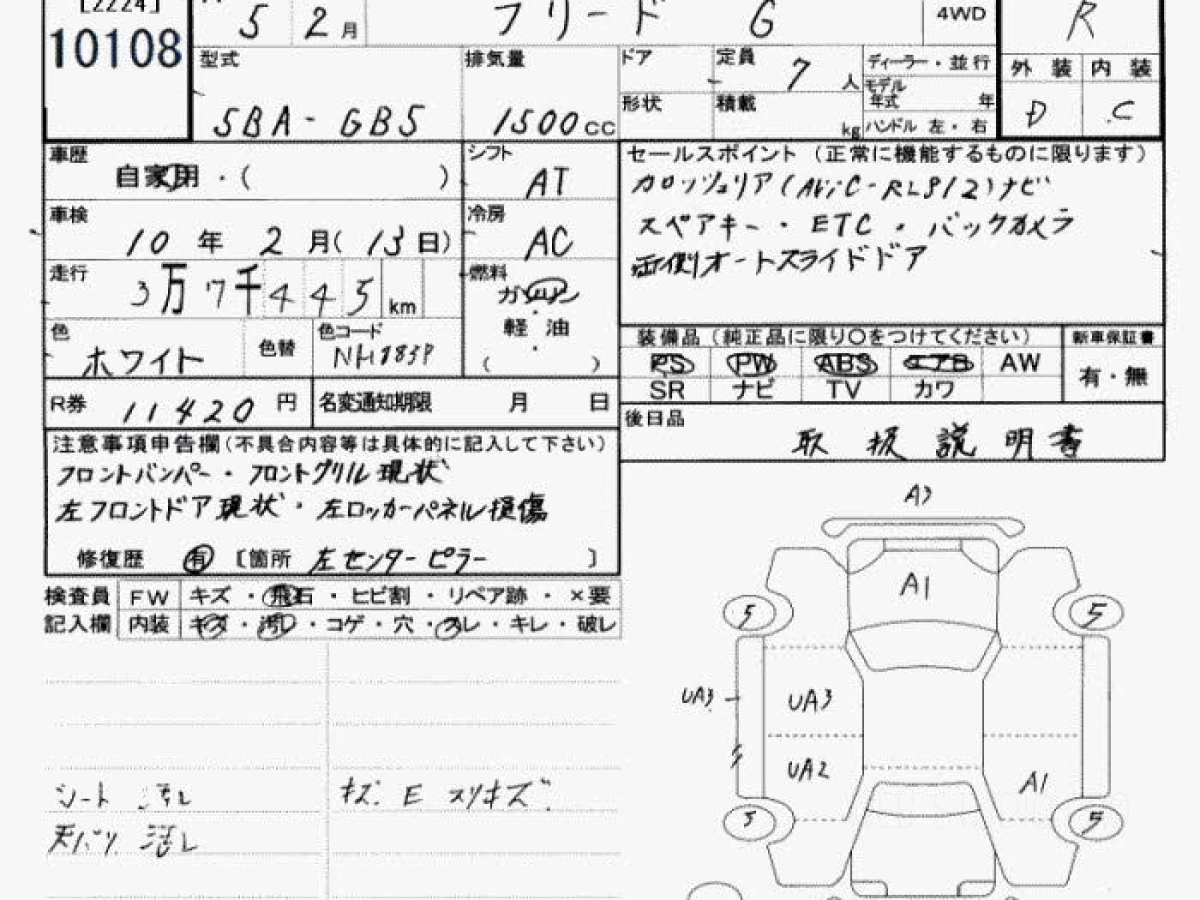 [2224]
10108
5 2月 フリード G 4WD R
型式 5BA-GB5
排気量 1500cc
ドア
形状
定員 7人
積載 kg
ディーラー・並行
モデル年式 年
ハンドル 左・右
外装 内装
D C
車歴 自家用・( )
シフト AT
車検 10年2月(13日)
冷房 AC
走行 3万7千445km
燃料 ガソリン
軽油
( )
色 ホワイト 色替 色コード NH883P
R券 11420円 名変通知期限 月 日
セールスポイント(正常に機能するものに限ります)
カロッツェリア(AViC-RL912)ナビ
スペアキー・ETC・バックカメラ
両側オートスライドドア
装備品(純正品に限り〇をつけてください) 新車保証書
PS PW ABS エアB AW 有・無
SR ナビ TV カワ
後日品
取扱説明書
注意事項申告欄(不具合内容等は具体的に記入して下さい)
フロントバンパー・フロントグリル現状
左フロントドア現状・左ロッカーパネル損傷
修復歴 有 〔箇所 左センターピラー 〕
検査員 FW キズ・飛石・ヒビ割・リペア跡・×要
記入欄 内装 キズ・汚レ・コゲ・穴・スレ・キレ・破レ
シート 汚レ
天バリ 汚レ
キズ E スリキズ
A3
A1
5 5
UA3 UA3
UA2 A1
5 5